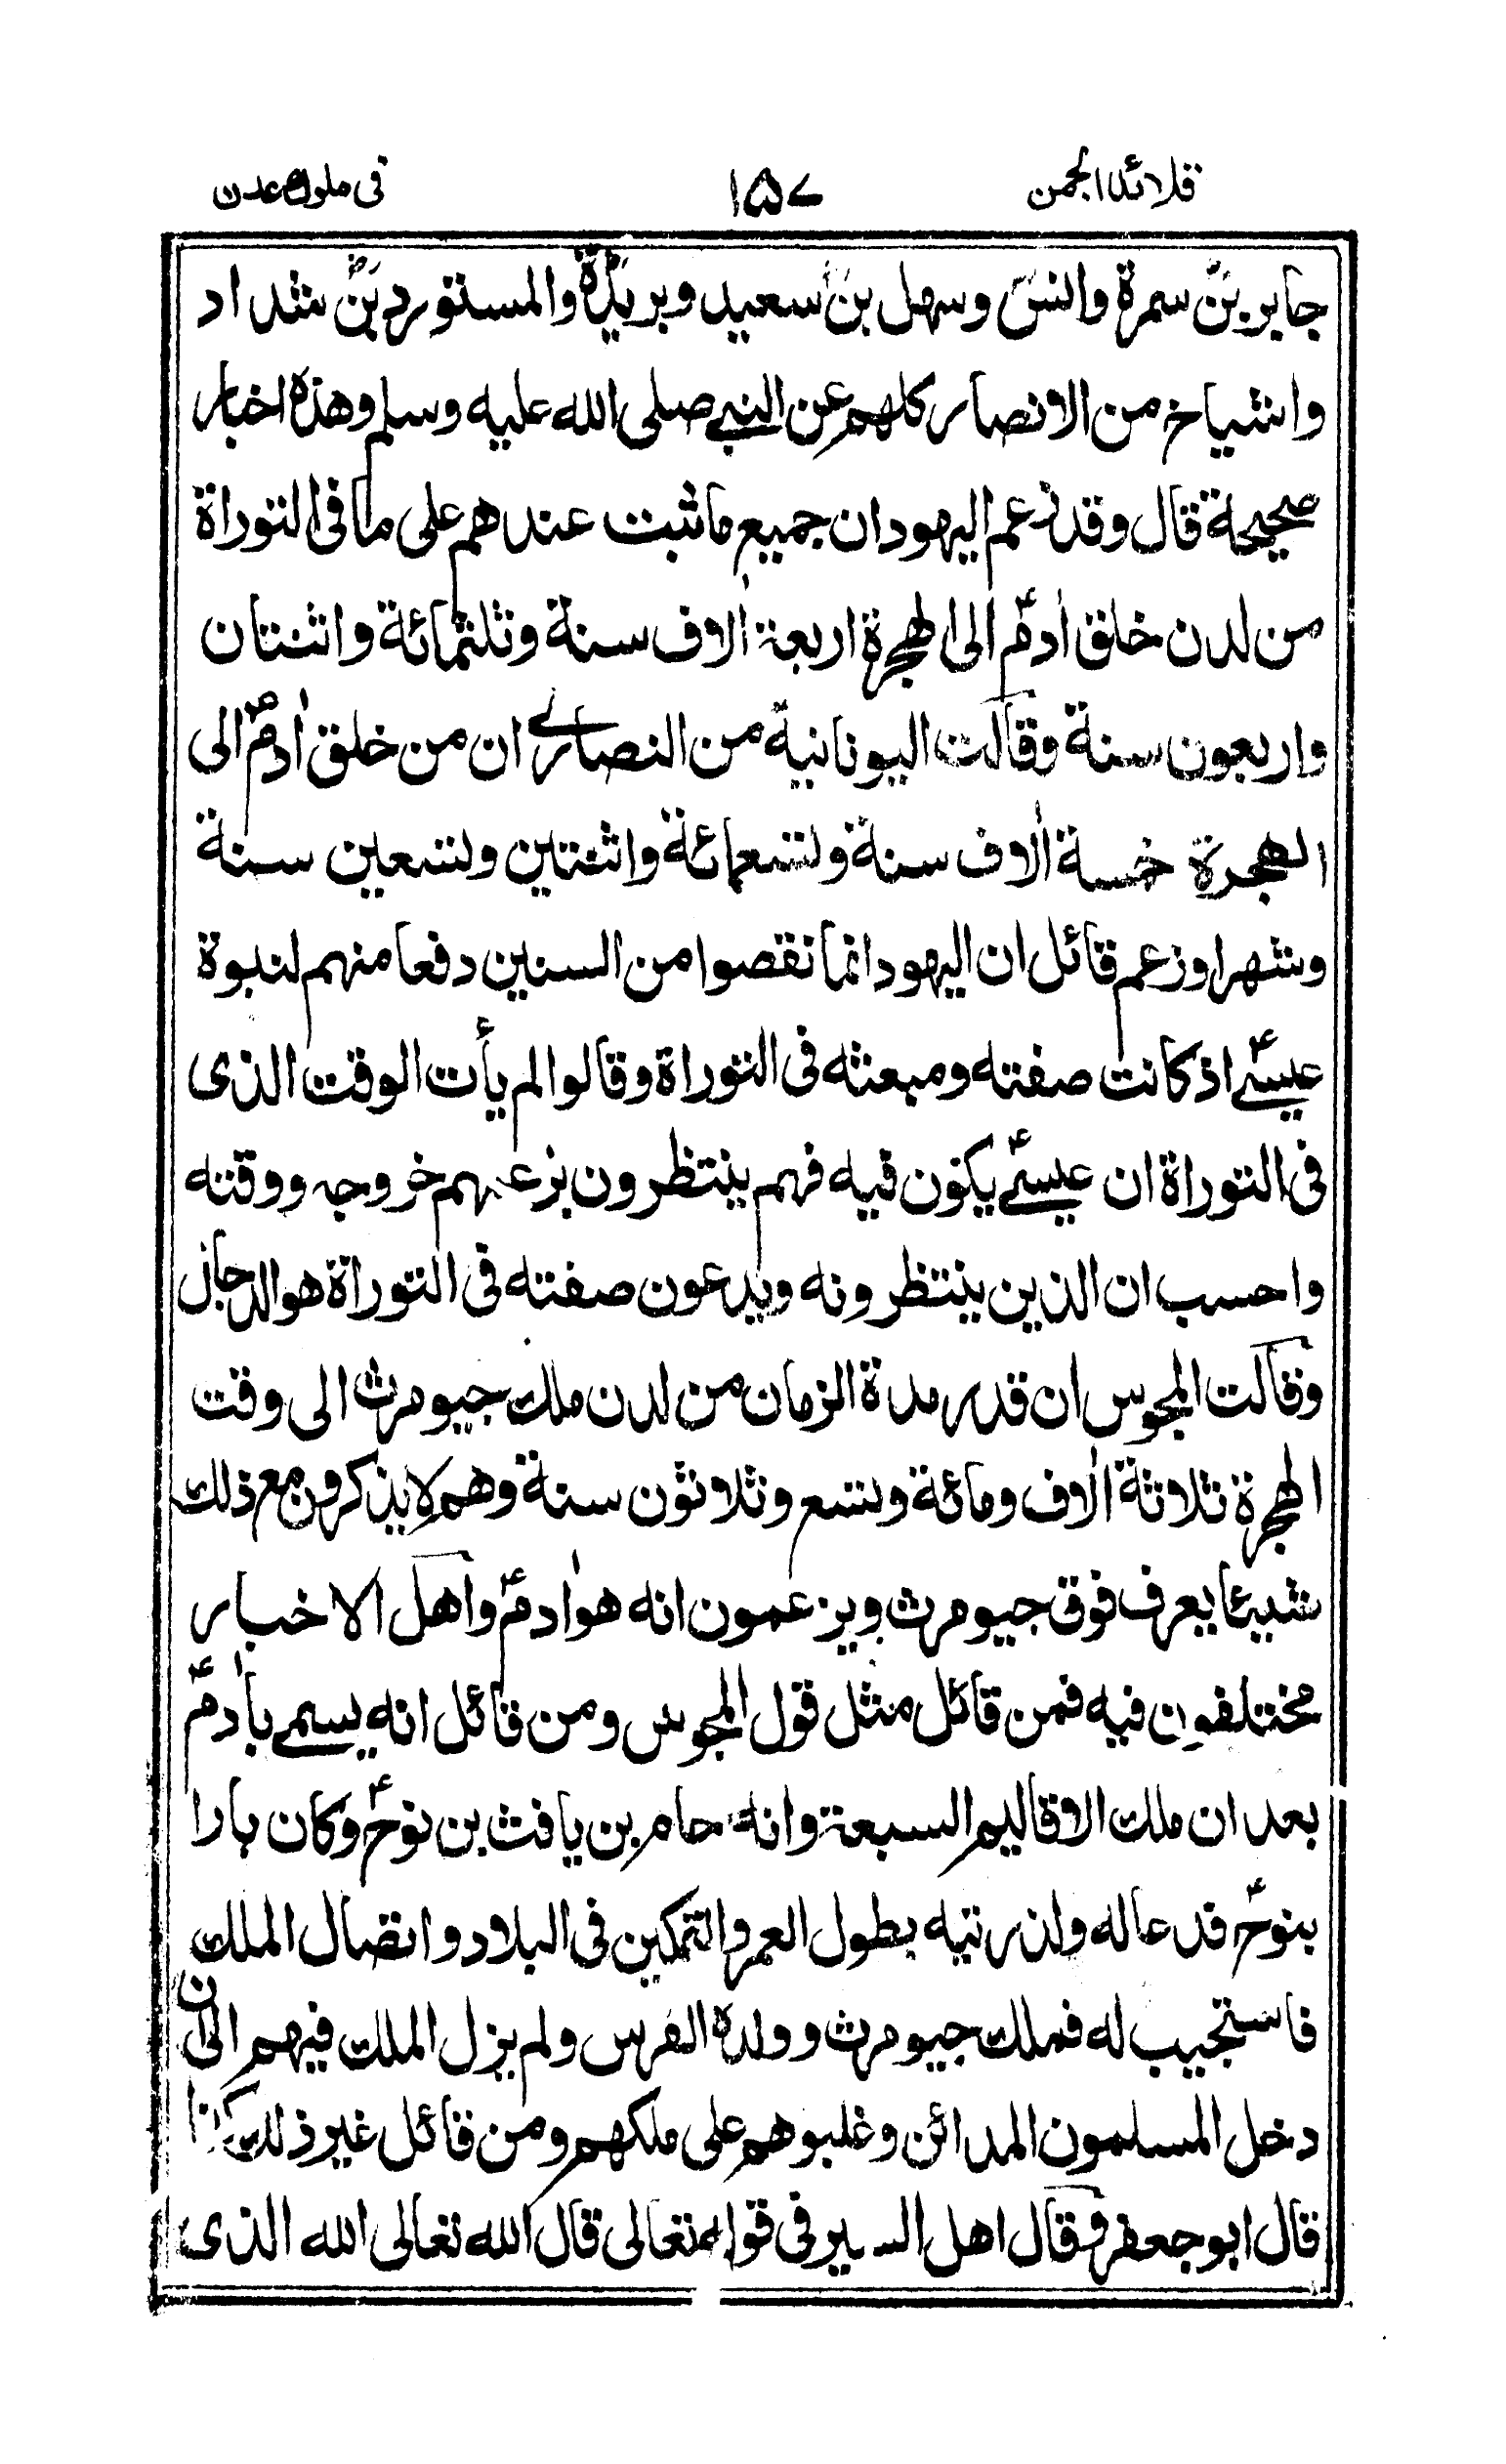 قلائد الجمن ١٥٧ فى ملوك عدن
جابر بن سمرة وانس وسهل بن سعيد وبريدة والمستورد بن شداد
واشياخ من الانصار كلهم عن النبى صلى الله عليه وسلم وهذه اخبار
صحيحة قال وقد زعم اليهود ان جميع ما ثبت عندهم على ما فى التوراة
من لدن خلق اٰدمؑ الى الهجرة اربعة اٰلاف سنة وثلثمائة واثنتان
واربعون سنة وقالت اليونانية من النصارى ان من خلق اٰدمؑ الى
الهجرة خمسة اٰلاف سنة وتسعمائة واثنتين وتسعين سنة
وشهرا وزعم قائل ان اليهود انما نقصوا من السنين دفعا منهم لنبوة
عيسىؑ اذ كانت صفته ومبعثه فى التوراة وقالوا لم يأت الوقت الذى
فى التوراة ان عيسىؑ يكون فيه فهم ينتظرون بزعمهم خروجه ووقته
واحسب ان الذين ينتظرونه ويدعون صفته فى التوراة هو الدجال
وقالت المجوس ان قدر مدة الزمان من لدن ملك جيومرث الى وقت
الهجرة ثلاثة اٰلاف ومائة وتسع وثلاثون سنة وهم لا يذكرون مع ذلك
شيئا يعرف فوق جيومرث ويزعمون انه هو اٰدمؑ واهل الاخبار
مختلفون فيه فمن قائل مثل قول المجوس ومن قائل انه يسمى باٰدمؑ
بعد ان ملك الاقاليم السبعة وانه حام بن يافث بن نوحؑ وكان بارا
بنوحؑ فدعا له ولذريته بطول العمر والتمكين فى البلاد واتصال الملك
فاستجيب له فملك جيومرث وولده الفرس ولم يزل الملك فيهم الى ان
دخل المسلمون المدائن وغلبوهم على ملكهم ومن قائل غير ذلك كذا
قال ابو جعفر وقال اهل السير فى قوله تعالى قال الله تعالى الله الذى